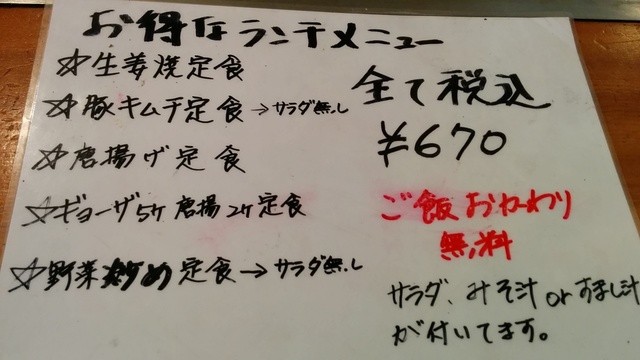 お得なランチメニュー
☆生姜焼定食
☆豚キムチ定食→サラダ無し
☆唐揚げ定食
☆ギョーザ5ケ唐揚2ケ定食
☆野菜炒め定食→サラダ無し
全て税込
¥670
ご飯おかわり
無料
サラダ、みそ汁orすまし汁
が付いてます。